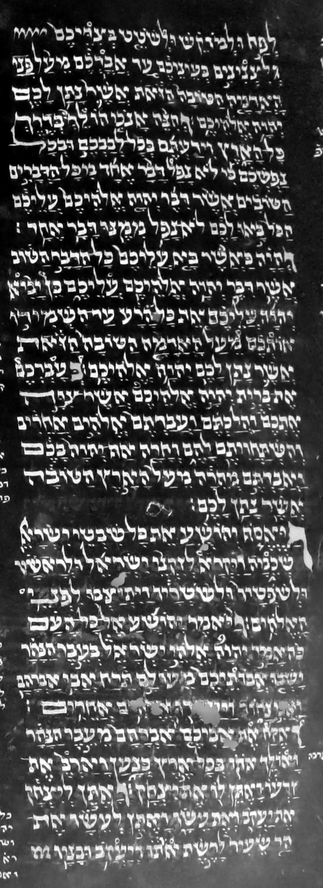 לפח ולמוקש ולשטט בצדיכם
ולצנינים בעיניכם עד אבדכם מעל פני
האדמה הטובה הזאת אשר נתן לכם
יהוה אלהיכם והנה אנכי הולך
כל הארץ וידעתם בכל לבבכם ובכל
נפשכם כי לא נפל דבר אחד מכל הדברים
הטובים אשר דבר יהוה אלהיכם עליכם
הכל באו לכם לא נפל ממנו דבר אחד :
והיה כאשר בא עליכם כל הדבר הטוב
אשר דבר יהוה אלהיכם עליכם כן יביא
יהוה עליכם את כל הדבר הרע עד השמידו
אותכם מעל האדמה הטובה הזאת
אשר נתן לכם יהוה אלהיכם בעברכם
את ברית יהוה אלהיכם אשר צוה
אתכם והלכתם ועבדתם אלהים אחרים
והשתחויתם להם וחרה אף יהוה בכם
ואבדתם מהרה מעל הארץ הטובה
אשר נתן לכם:
ויאסף יהושע את כל שבטי ישראל
שכמה ויקרא לזקני ישראל ולראשיו
ולשפטיו ולשטריו ויתיצבו לפני
האלהים ויאמר יהושע אל כל העם
כה אמר יהוה אלהי ישראל בעבר הנהר
ישבו אבותיכם מעולם תרח אבי אברהם
ויעבדו אלהים אחרים
ואקח את אביכם את אברהם מעבר הנהר
ואולך אותו בכל ארץ כנען וארב את
זרעו ואתן לו את יצחק ואתן ליצחק
את יעקב ואת עשו ואתן לעשו את
הר שעיר לרשת אותו ויעקב ובניו